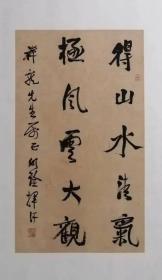 得山水清氣
極風雲大觀
先生屬正